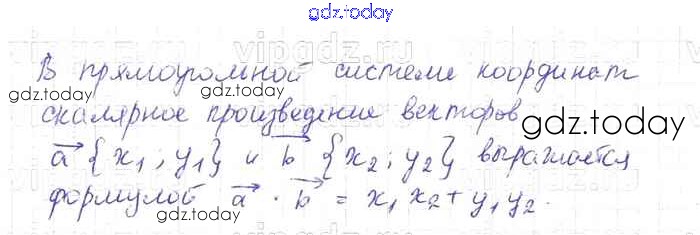 gdz.today
vipgdz.ru
В прямоугольной системе координат
gdz.today
скалярное произведение векторов
gdz.today
a⃗ {x₁; y₁} и b⃗ {x₂; y₂} выражается
формулой a⃗ · b⃗ = x₁x₂ + y₁y₂.
gdz.today